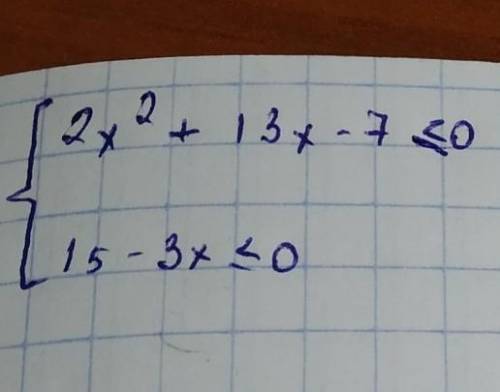 2x² + 13x - 7 ≤ 0
15 - 3x ≤ 0